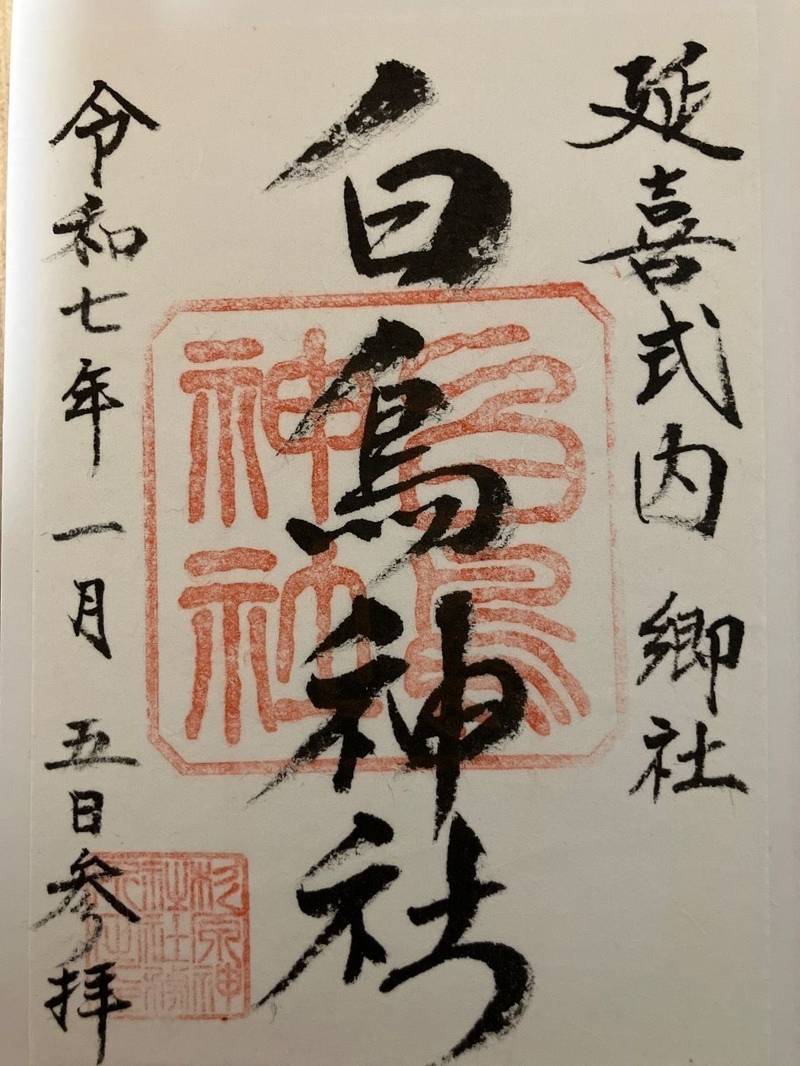 延喜式内 郷社
白鳥神社
令和七年 一月 五日参拝
白鳥神社